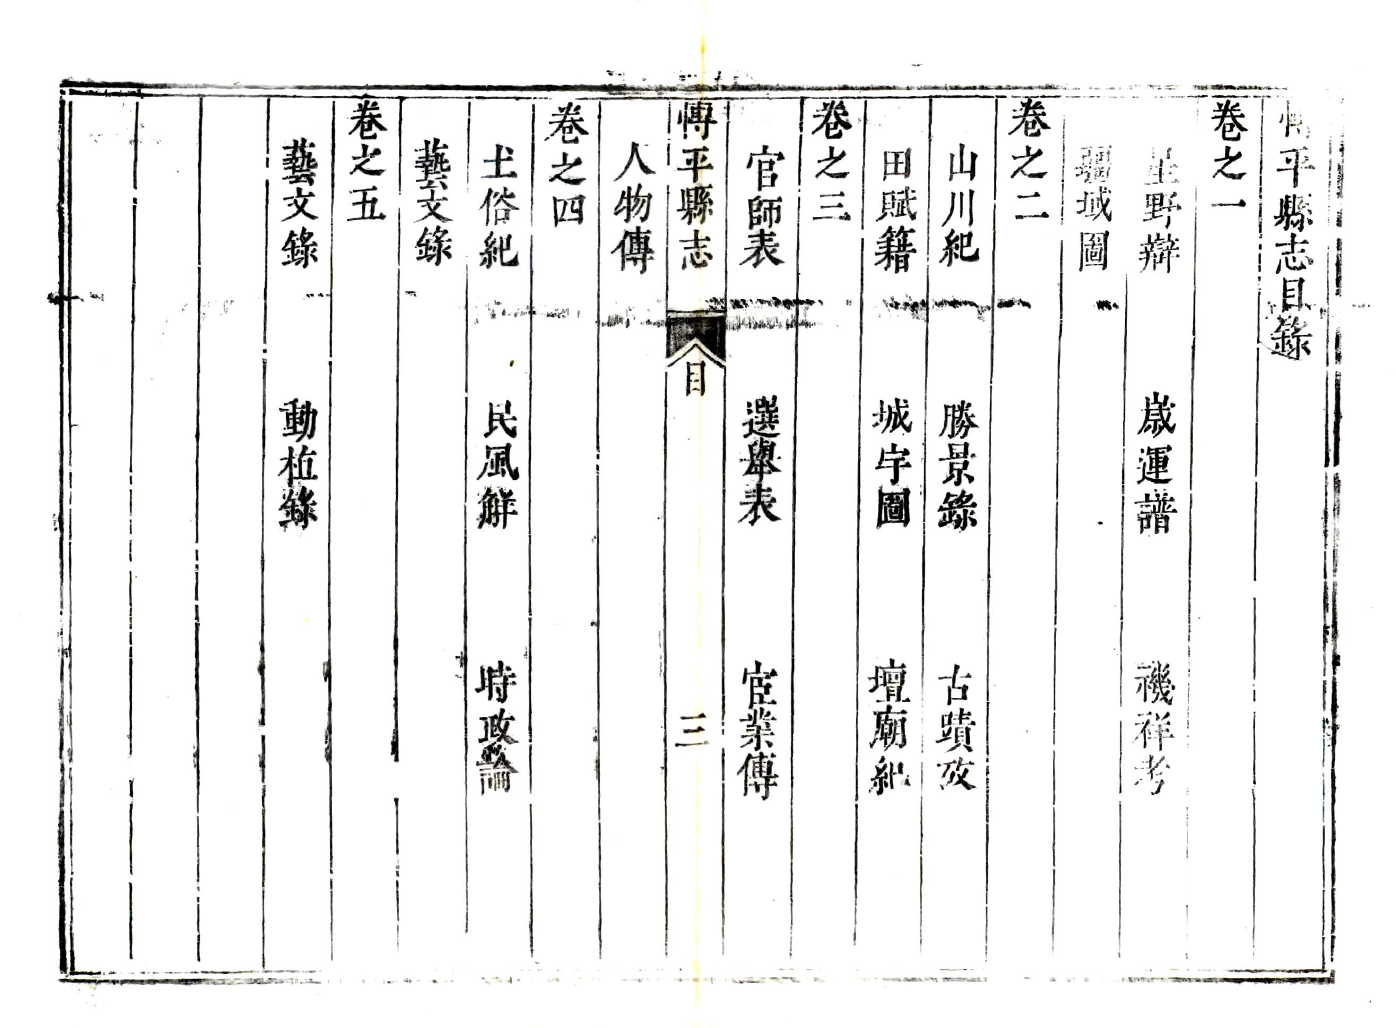 博平縣志目錄
卷之一
星野辯 嵗運譜 禨祥考
疆域圖
卷之二
山川紀 勝景錄 古蹟攷
田賦籍 城宇圖 壇廟紀
卷之三
官師表 選舉表 宦業傳
博平縣志 目 三
人物傳
卷之四
土俗紀 民風解 時政論
藝文錄
卷之五
藝文錄 動植錄